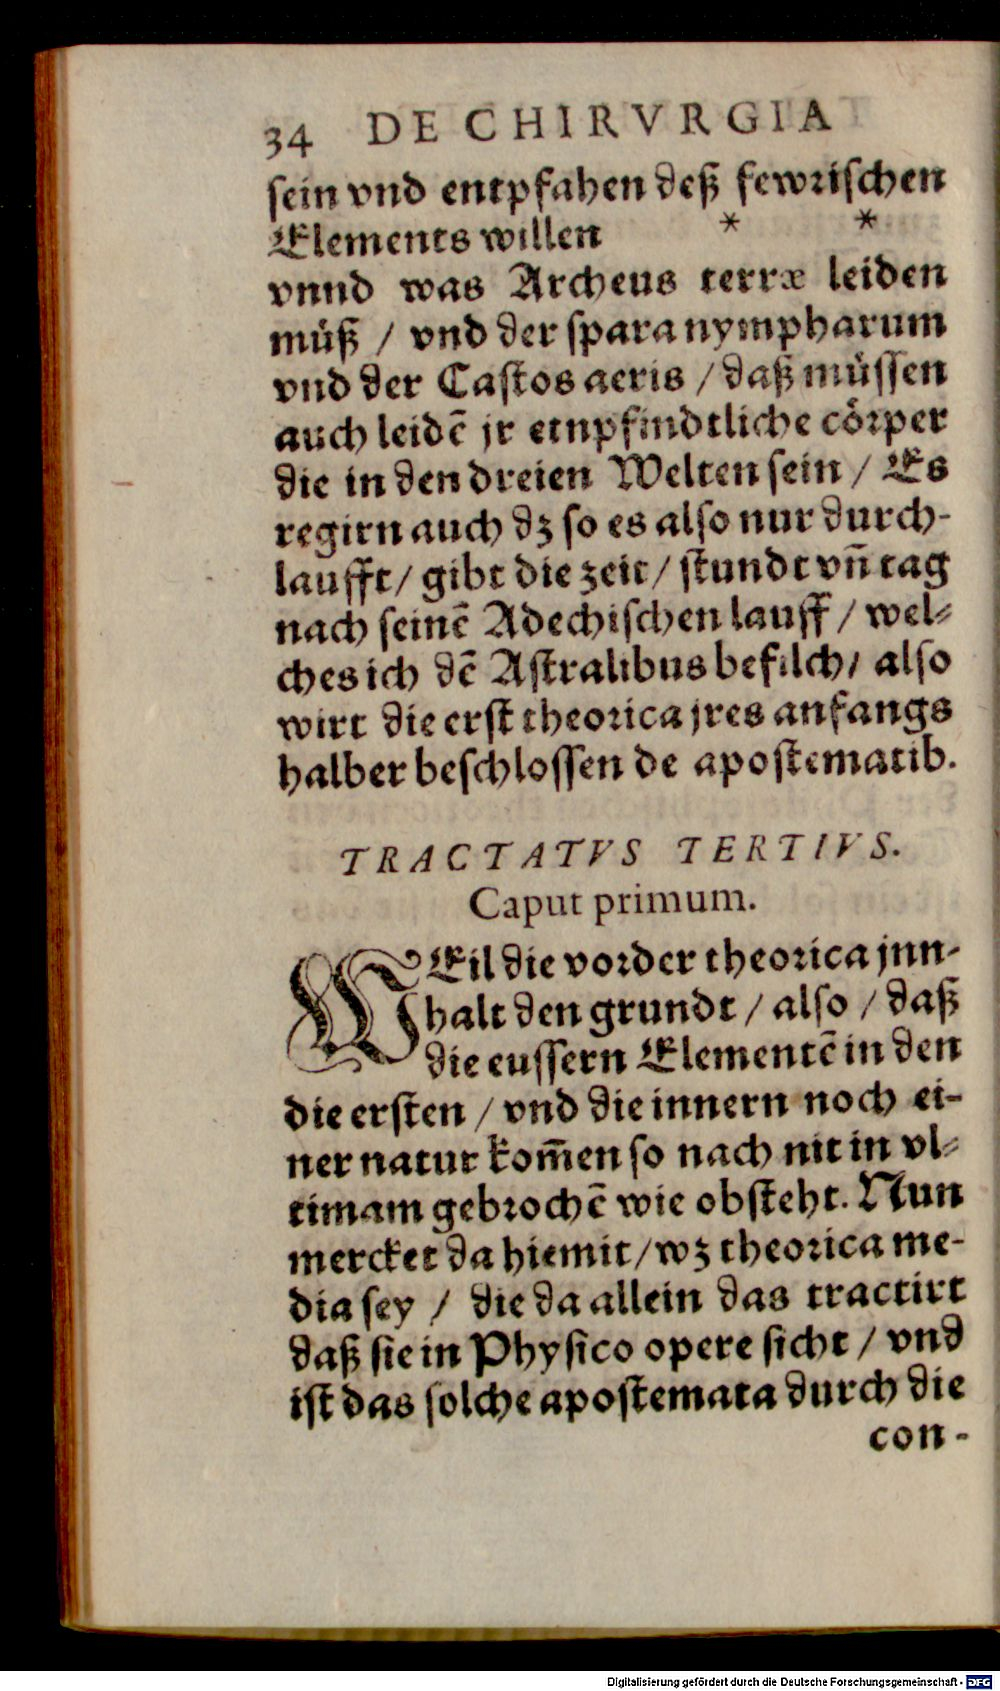 34 DE CHIRVRGIA
sein vnd entpfahen deß fewrischen
Elements willen * *
vnnd was Archeus terræ leiden
müß / vnd der spara nympharum
vnd der Castos aeris / daß müssen
auch leidē jr etnpfindtliche cörper
die in den dreien Welten sein / Es
regirn auch dz so es also nur durch-
laufft / gibt die zeit / stundt vn̄ tag
nach seinē Adechischen lauff / wel-
ches ich dē Astralibus befilch / also
wirt die erst theorica jres anfangs
halber beschlossen de apostematib.
TRACTATVS TERTIVS.
Caput primum.
WEil die vorder theorica jnn-
halt den grundt / also / daß
die eussern Elementē in den
die ersten / vnd die innern noch ei-
ner natur kom̄en so nach nit in vl-
timam gebrochē wie obsteht. Nun
mercket da hiemit / wz theorica me-
dia sey / die da allein das tractirt
daß sie in Physico opere sicht / vnd
ist das solche apostemata durch die
con-
Digitalisierung gefördert durch die Deutsche Forschungsgemeinschaft - DFG